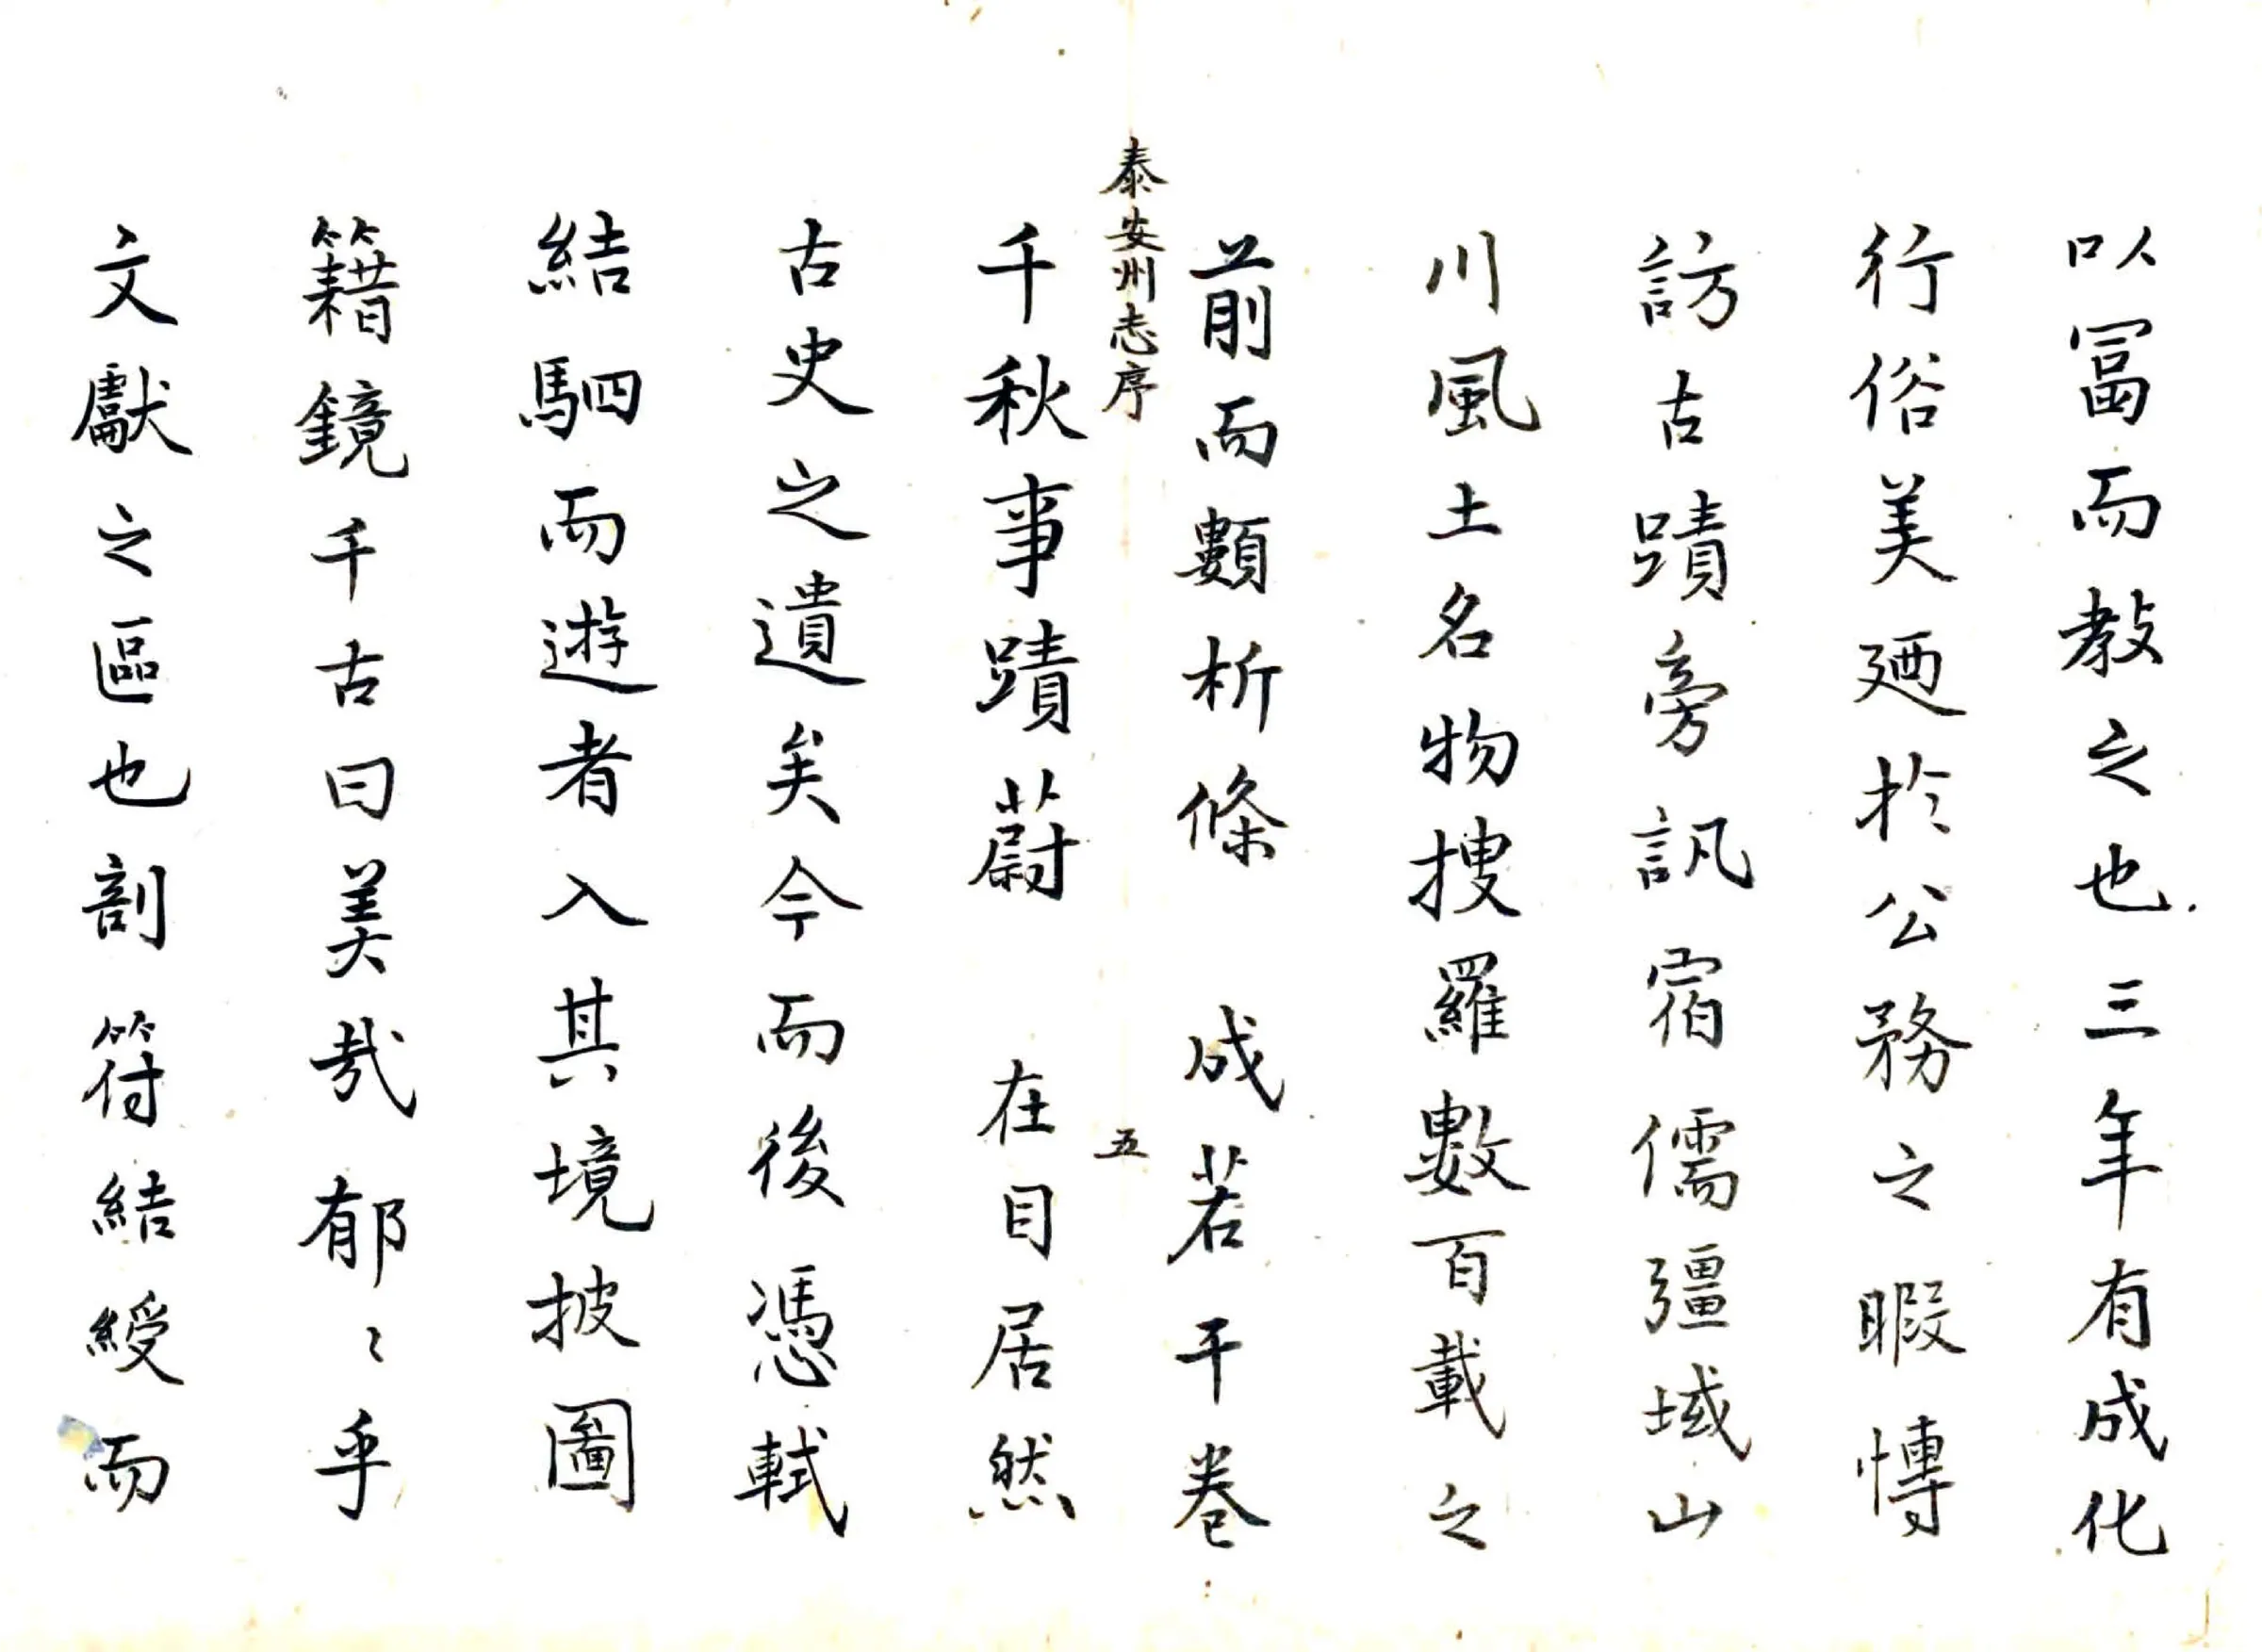 以冨而教之也三年有成化
行俗美廼於公務之暇慱
訪古蹟旁訊宿儒彊域山
川風土名物搜羅數百載之
前而類析條成若干卷
泰安州志序
五
千秋事蹟蔚在目居然
古史之遺矣今而後憑軾
結駟而遊者入其境披圖
籍鏡千古曰美哉郁〻乎
文獻之區也剖符結綬而